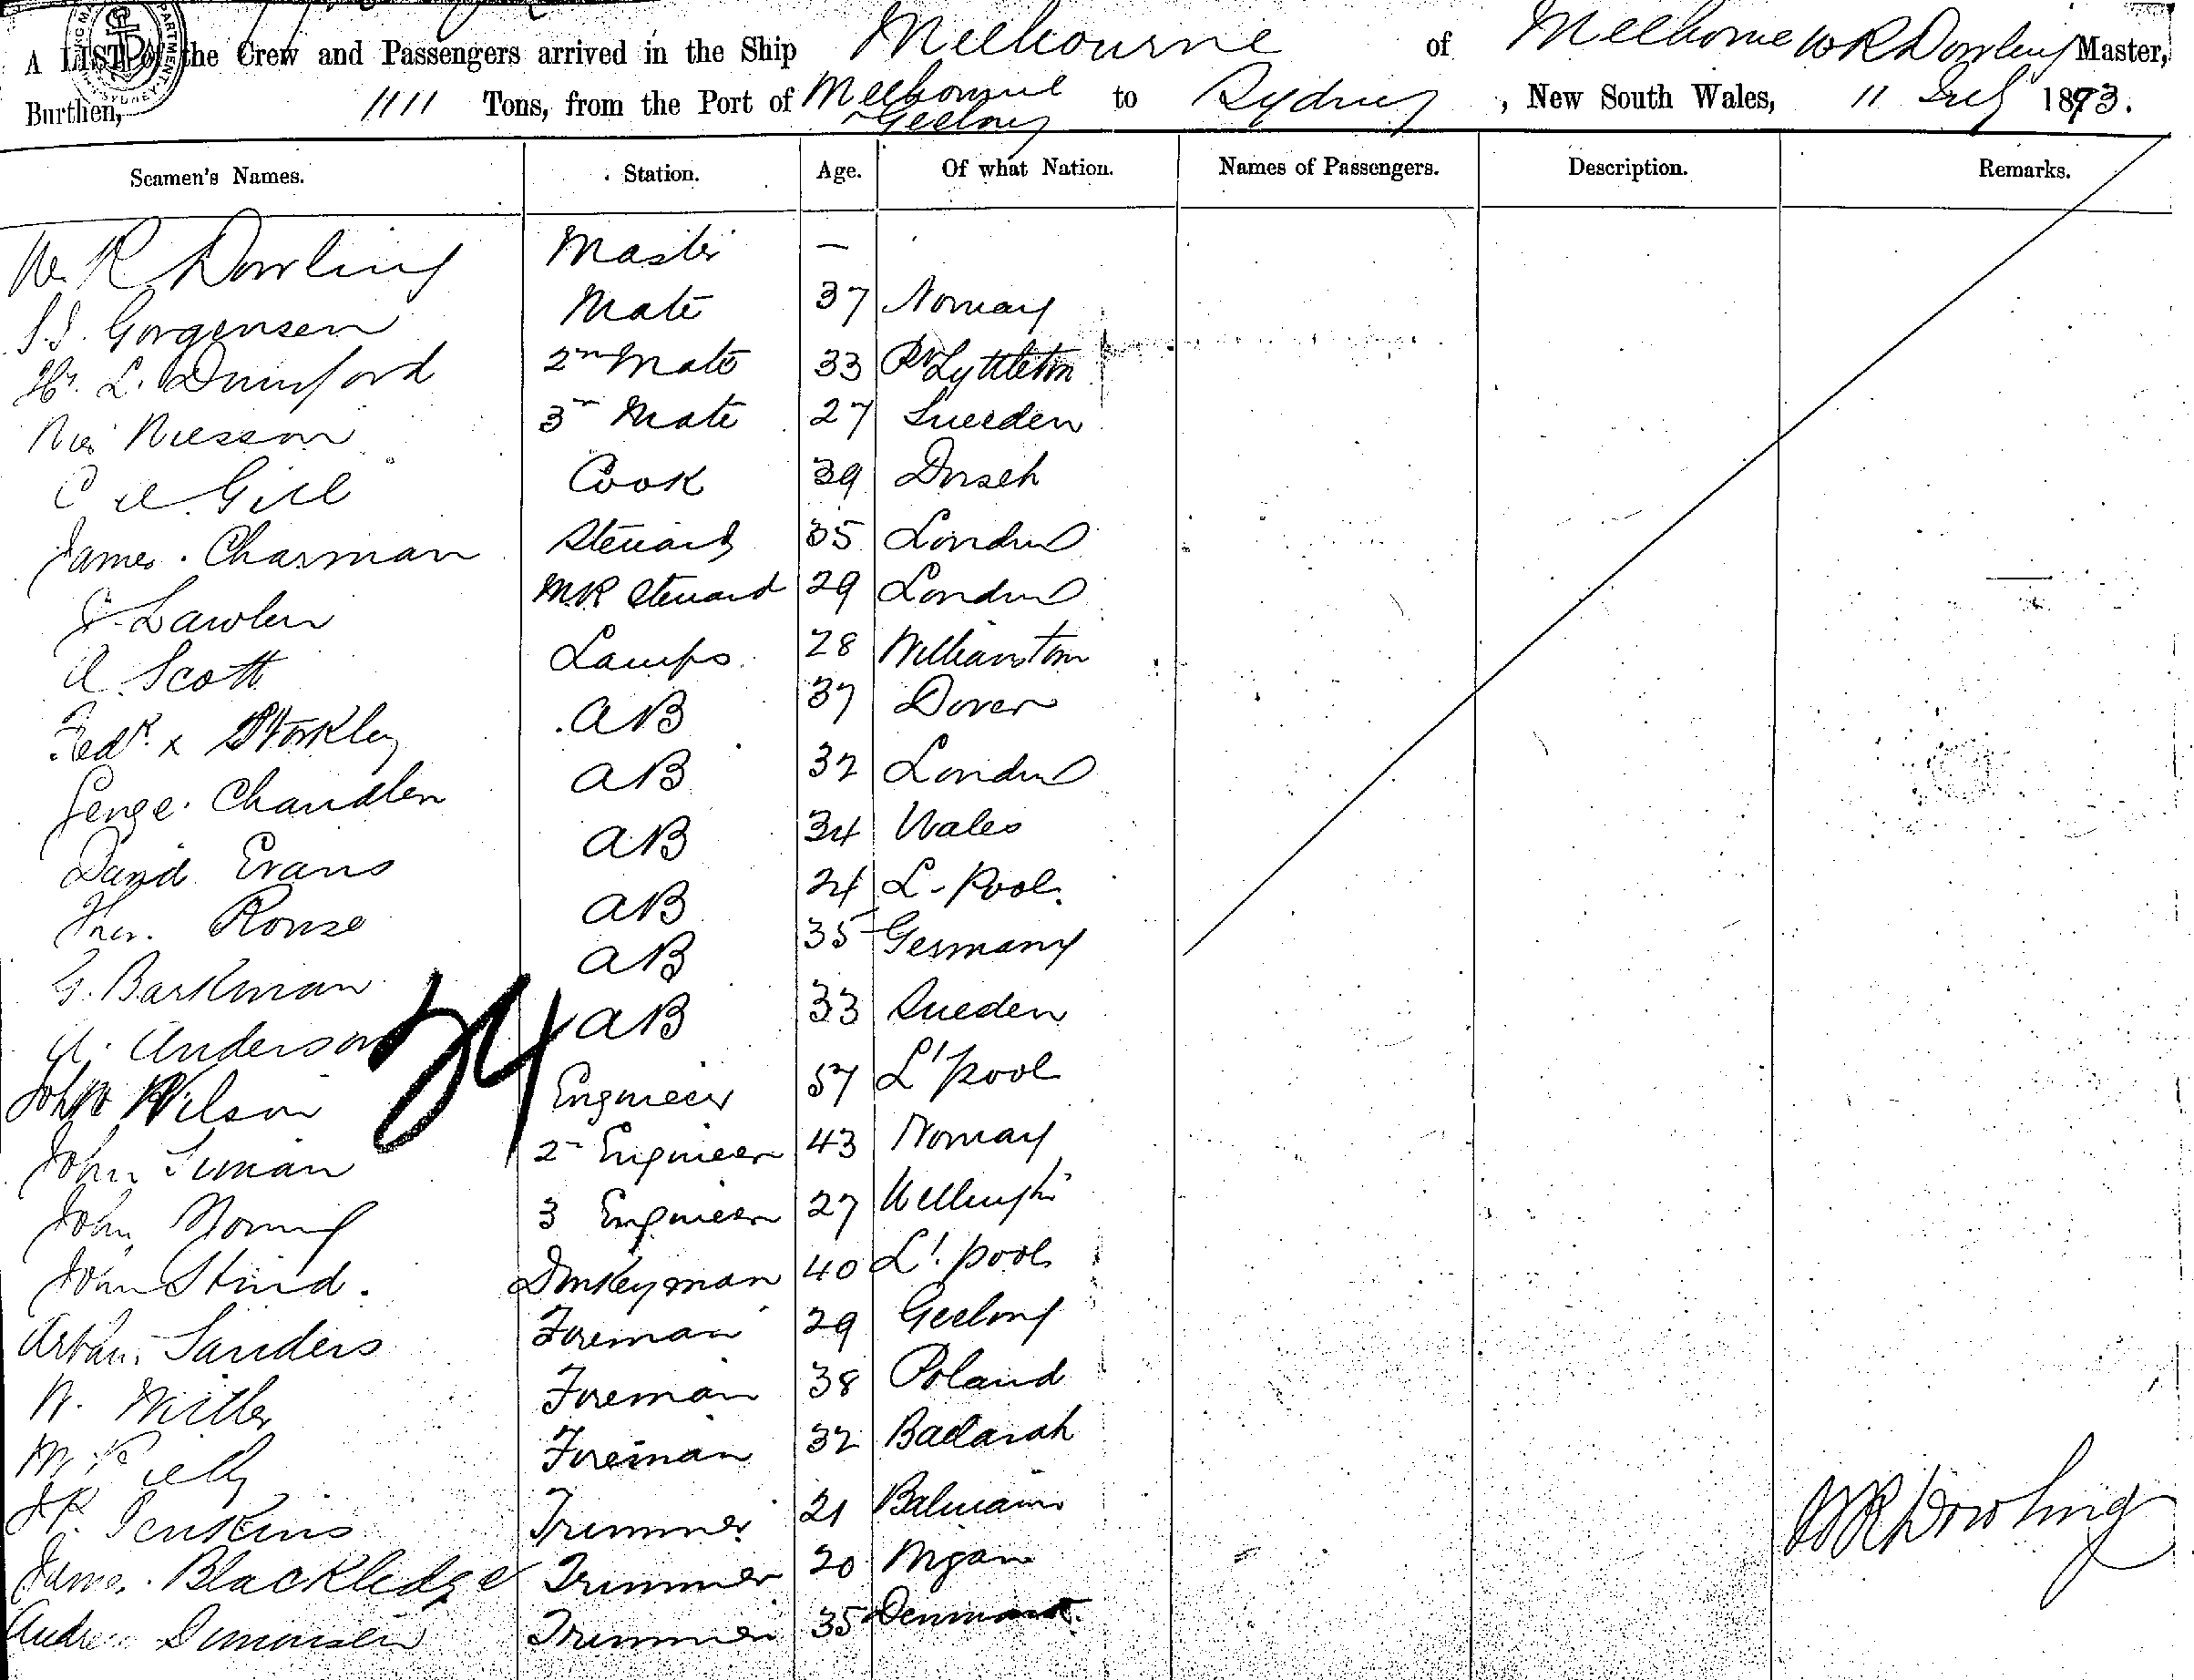 A LIST of the Crew and Passengers arrived in the Ship Melbourne of Melborne W R Dowling Master,
Burthen, 1111 Tons, from the Port of Melbourne to Sydney, New South Wales, 11 July 1893.
Geelong
Seamen's Names. Station. Age. Of what Nation. Names of Passengers. Description. Remarks.
W. R Dowling Master —
J.J. Gorgensen Mate 37 Norway
L. Dunsford 2n Mate 33 Pt Lyttleton
Niesson 3r Mate 27 Sweeden
Gill Cook 39 Dorset
James Charman Steward 35 London
Lawler M.R Steward 29 London
A. Scott Lamps 28 Williamstown
Fedk x Storkley AB 37 Dover
George Chandler AB 32 London
David Evans AB 34 Wales
Thos. Rouse AB 24 L-Pool.
G. Barkman AB 35 Germany
A. Anderson AB 33 Sueden
24
John Wilson Engineer 57 L'pool
John 2n Engineer 43 Norway
John Young 3 Engineer 27 Wellington
John Donkeyman 40 L'pool
Arthur Sanders Fireman 29 Geelong
W. Miller Fireman 38 Poland
M. Kielly Fireman 32 Ballarat
Jenkins Trimmer 21 Balmain
James Blackledge Trimmer 20 Wigan
Andre Simonsen Trimmer 35 Denmark
WR Dowling